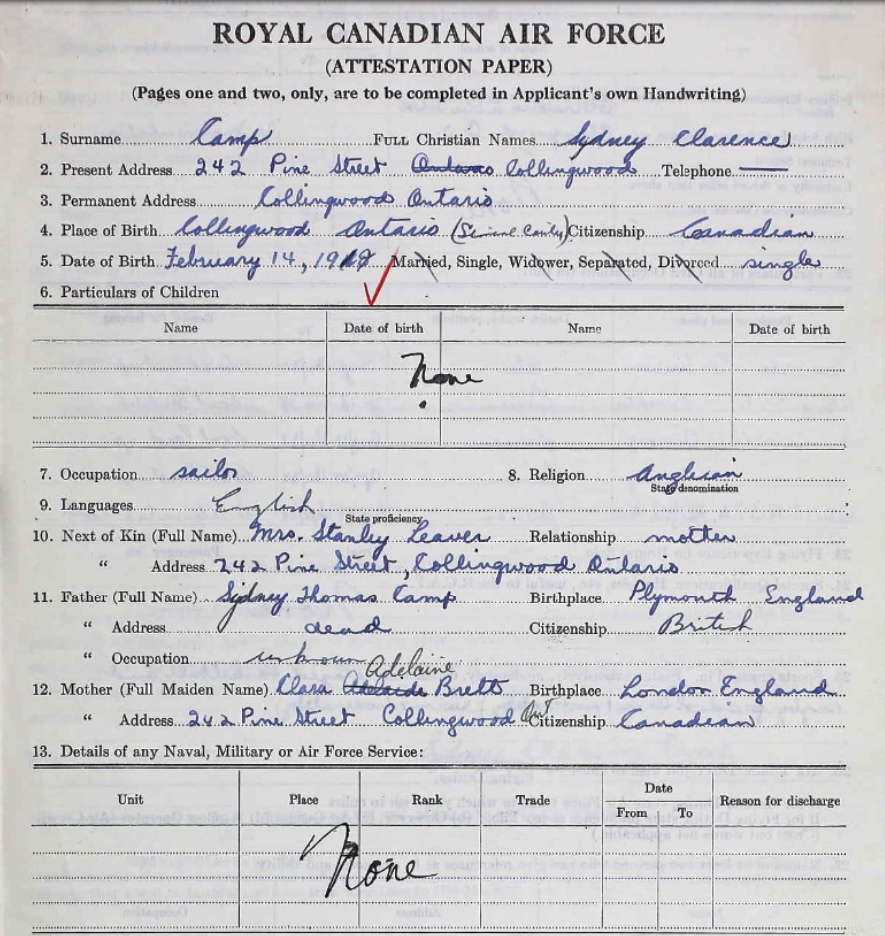 ROYAL CANADIAN AIR FORCE
(ATTESTATION PAPER)
(Pages one and two, only, are to be completed in Applicant's own Handwriting)
1. Surname Camp FULL Christian Names Sydney Clarence
2. Present Address 242 Pine Street Ontario Collingwood Telephone
3. Permanent Address Collingwood Ontario
4. Place of Birth Collingwood Ontario (Simcoe County) Citizenship Canadian
5. Date of Birth February 14, 19 Married, Single, Widower, Separated, Divorced single
6. Particulars of Children
Name Date of birth Name Date of birth
None
7. Occupation sailor 8. Religion Anglican
State denomination
9. Languages English
State proficiency
10. Next of Kin (Full Name) Mrs. Stanley Leaver Relationship mother
" Address 242 Pine Street, Collingwood Ontario.
11. Father (Full Name) Sydney Thomas Camp Birthplace Plymouth England
" Address dead Citizenship British
" Occupation unknown
Adelaine
12. Mother (Full Maiden Name) Clara Adelaide Brett Birthplace London England
" Address 242 Pine Street Collingwood Ont Citizenship Canadian
13. Details of any Naval, Military or Air Force Service:
Unit Place Rank Trade Date Reason for discharge
From To
None